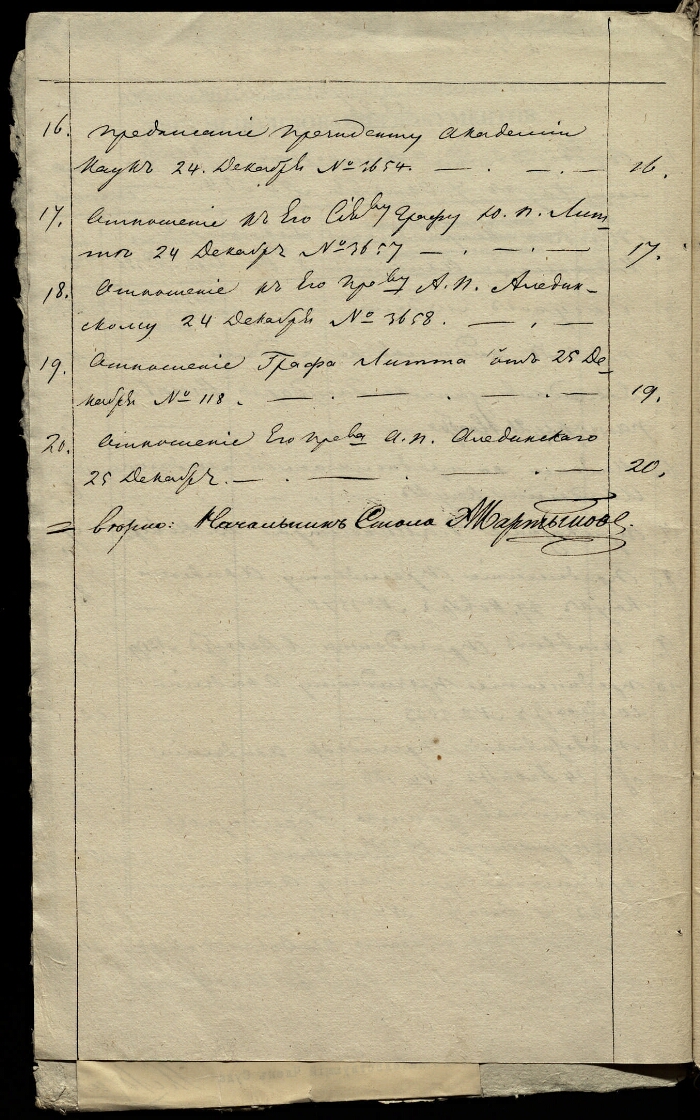 16. Предписаніе Президенту Академіи
Наукъ 24. Декабря № 3654. — . — . — 16.
17. Отношеніе къ Его Сія-ву Графу Ю. П. Лит-
тѣ 24 Декабря № 3657 — . — . — 17.
18. Отношеніе къ Его Пре-ву А. П. Аледин-
скому 24 Декабря № 3658. — . —
19. Отношеніе Графа Литта отъ 25 Де-
кабря № 118. — . — . — . — 19.
20. Отношеніе Его Прева А. П. Алединскаго
25 Декабря. — . — . — . — 20.
= Вѣрно: Начальникъ Стола Мартыновъ.